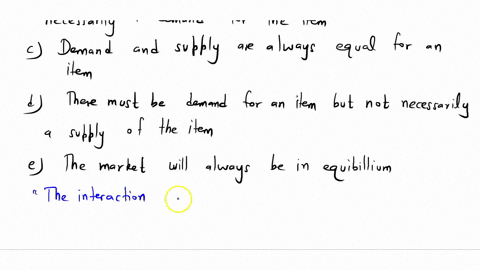 necessarily a demand for the item
c) Demand and supply are always equal for an
item
d) There must be demand for an item but not necessarily
a supply of the item
e) The market will always be in equibillium
" The interaction